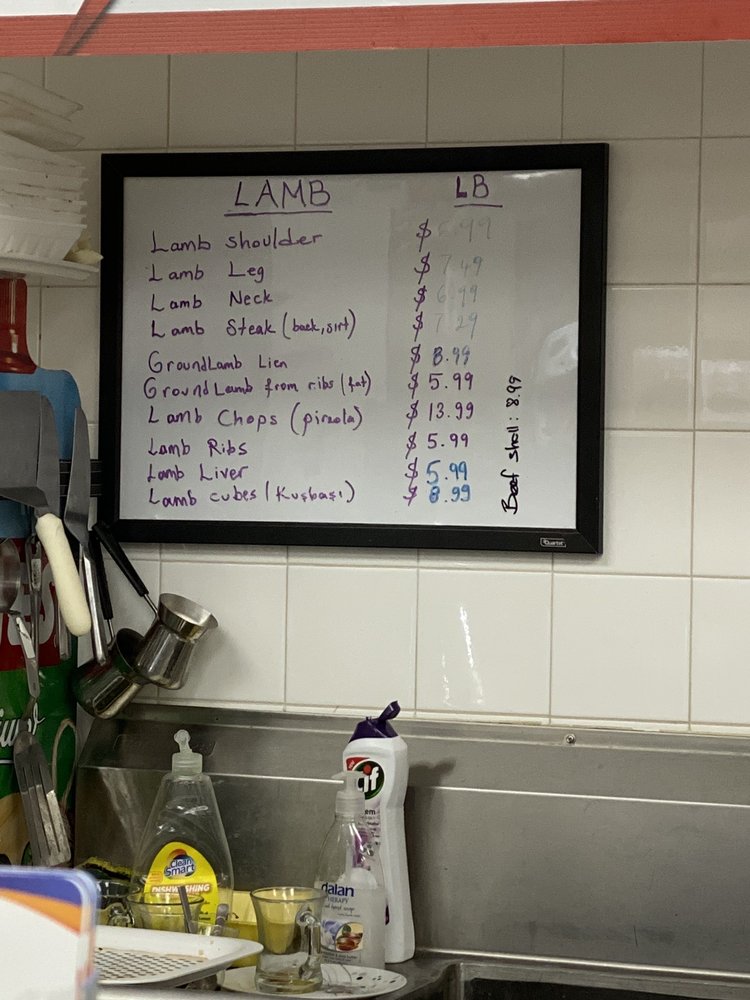 LAMB LB
Lamb shoulder $ 6.99
Lamb Leg $ 7.49
Lamb Neck $ 6.99
Lamb Steak (back, sirt) $ 7.29
Ground Lamb Lien $ 8.99
Ground Lamb from ribs (fat) $ 5.99
Lamb Chops (pirzola) $ 13.99
Lamb Ribs $ 5.99
Lamb Liver $ 5.99
Lamb cubes (Kuşbaşı) $ 8.99
Beef shall: 8.99
Quartet
Clean Smart
DISHWASHING
cif
dalan
THERAPY